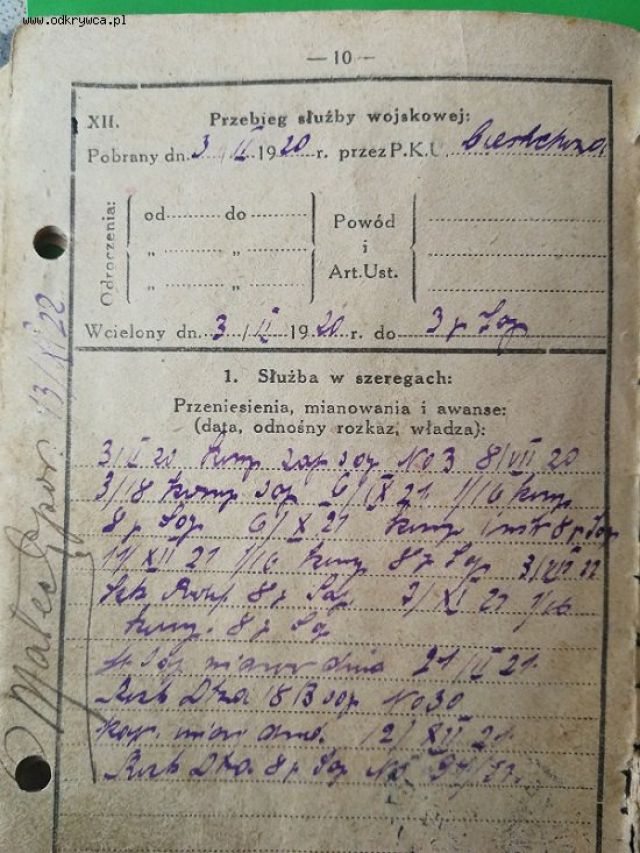 www.odkrywca.pl
— 10 —
XII. Przebieg służby wojskowej:
Pobrany dn. 3/II 1920 r. przez P.K.U.
Odroczenia:
od do
„ „
„ „
Powód
i
Art. Ust.
Wcielony dn. 3/II 1920 r. do 3 p Sap
1. Służba w szeregach:
Przeniesienia, mianowania i awanse:
(data, odnośny rozkaz, władza):
3/II 20 komp zap sap No 3 8/VII 20
3/18 komp sap 6/IX 21 1/16 komp
8 p Sap 6/X 21 komp instr 8 p Sap
11/XII 21 1/16 komp 8 p Sap
8 p Sap
komp. 8 p Sap
st Sap mianow dnia 21/II 21
Rozk Dtwa 18 B sap No 30
kapr. mian dnia 12/XII 21
Rozk Dtwa 8 p Sap No
por. 13/X 22